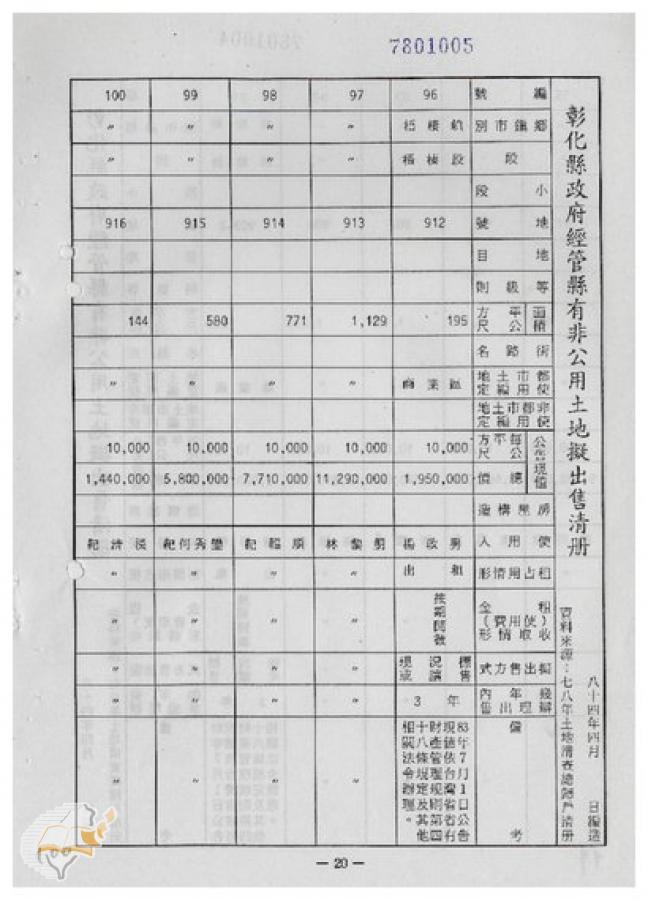 7801005
彰化縣政府經管縣有非公用土地擬出售清册
資料來源：七八年土地清查總歸戶清册
八十四年四月 日編造
編號 96 97 98 99 100
鄉鎮市別 梧棲鎮 〃 〃 〃 〃
段 梧棲段 〃 〃 〃 〃
小段
地號 912 913 914 915 916
地目
等級則
面積平方公尺 195 1,129 771 580 144
街路名
都市土地使用編定 商業區 〃 〃 〃 〃
非都市土地使用編定
公告現值 每平方公尺 10,000 10,000 10,000 10,000 10,000
總價 1,950,000 11,290,000 7,710,000 5,800,000 1,440,000
房屋構造
使用人 楊政男 林 紀 順 紀何秀 紀清
租占用情形 出租 〃 〃 〃 〃
租金(使用費)收取情形 按期開徵 〃 〃 〃 〃
擬出售方式 現況標售或讓售 〃 〃 〃 〃
幾年內辦理出售 3年 〃 〃 〃 〃
備考 83年7月1日公告現值依台灣省省有財產管理規則第四十八條規定及其他相關法令辦理。 〃 〃 〃 〃
— 20 —